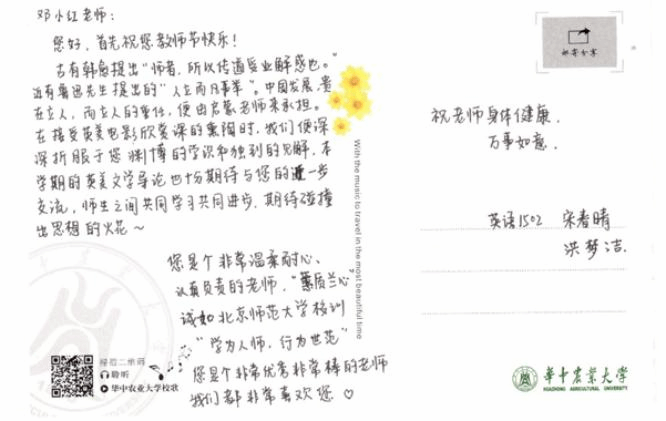 邓小红老师:
您好,首先祝您教师节快乐!
古有韩愈提出“师者,所以传道受业解惑也。”
近有鲁迅先生提出的“人立而凡事举”。中国发展,贵
在立人,而立人的重任,便由启蒙老师来承担。
在接受英美电影欣赏课的熏陶时,我们便深
深折服于您渊博的学识和独到的见解,本
学期的英美文学导论也十分期待与您的进一步
交流,师生之间共同学习共同进步,期待碰撞
出思想的火花~
您是个非常温柔耐心、
认真负责的老师,“蕙质兰心”
诚如北京师范大学校训
“学为人师,行为世范”
您是个非常优秀非常棒的老师
我们都非常喜欢您♡
扫描二维码
聆听
华中农业大学校歌
With the music to travel in the most beautiful time
邮寄分享
祝老师身体健康,
万事如意.
英语1502 宋春晴
洪梦洁.
华中农业大学
HUAZHONG AGRICULTURAL UNIVERSITY